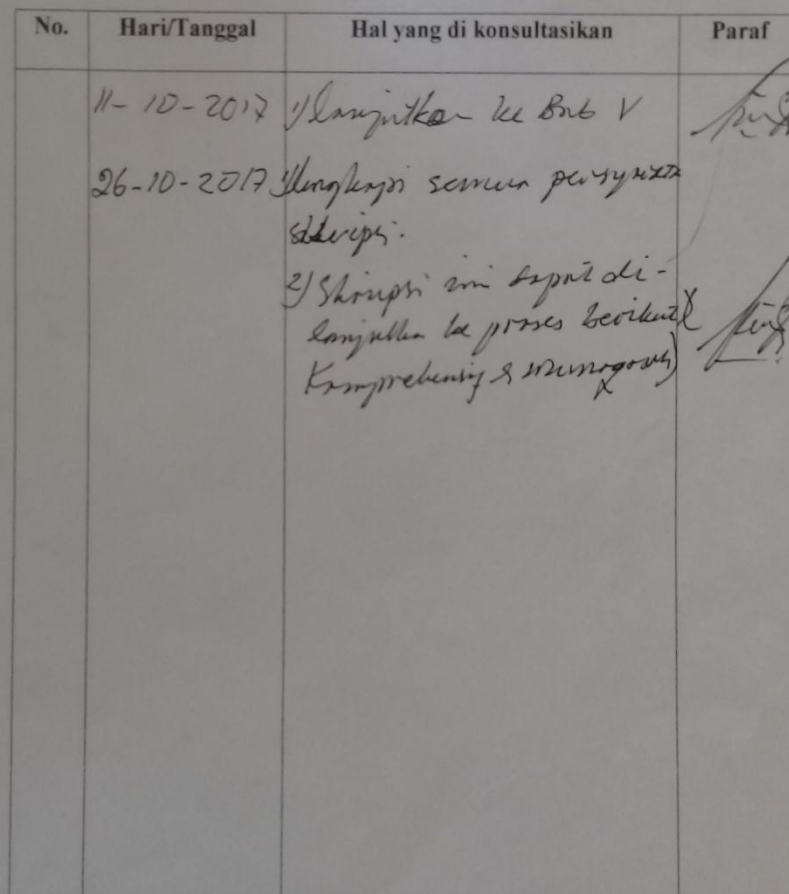 No. Hari/Tanggal Hal yang di konsultasikan Paraf
11-10-2017 1) lanjutkan ke Bab V
26-10-2017 1) lengkapi semua persyaratan
skripsi.
2) Skripsi ini dapat di-
lanjutkan ke proses berikut
Komprehensif & munaqosah)